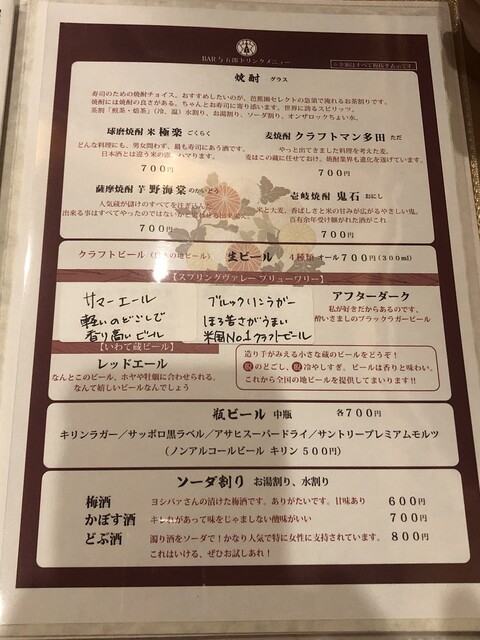 BAR 与五郎ドリンクメニュー
焼酎 グラス
寿司のための焼酎チョイス。おすすめしたいのが、芭蕉園セレクトの急須で淹れるお茶割りです。
焼酎には焼酎の良さがある。ちゃんとお寿司に寄り添います。世界に誇るスピリッツ。
茶割「煎茶・焙茶」(冷、温) 水割り、お湯割り、ソーダ割り、オンザロックちょい水。
球磨焼酎 米 極楽 ごくらく
どんな料理にも、男女問わず、最も寿司にあう酒です。
日本酒とは違う米の恋。ハマります。
700円
麦焼酎 クラフトマン多田 ただ
やっと出てきました料理を考えた麦。
麦はこの蔵に任せておけ。焼酎業界も進化を遂げています。
700円
薩摩焼酎 芋 野海棠 のかいどう
人気蔵が儲けのすべてを注ぎ込んだ
出来る事はすべてやったのではないかと
700円
壱岐焼酎 鬼石 おにし
米と大麦、香ばしさと米の甘みが広がるやさしい鬼。
百有余年受け継がれた酒がこれ
700円
クラフトビール 生ビール 4種類 オール700円(300ml)
【スプリングヴァレー ブリューワリー】
サマーエール
軽いのどごしで
香り高いビール
ブルックリンラガー
ほろ苦さがうまい
米国No.1クラフトビール
アフターダーク
私が好きだからあるのです。
酔いさましのブラックラガービール
【いわて蔵ビール】
レッドエール
なんとこのビール、ホヤや牡蠣に合わせられる。
なんて嬉しいビールなんでしょう
造り手がみえる小さな蔵のビールをどうぞ!
脱のどごし、脱冷やしすぎ。ビールは香りと味わい。
これから全国の地ビールを提供してまいります!!
瓶ビール 中瓶 各700円
キリンラガー/サッポロ黒ラベル/アサヒスーパードライ/サントリープレミアムモルツ
(ノンアルコールビール キリン 500円)
ソーダ割り お湯割り、水割り
梅酒 ヨシバァさんの漬けた梅酒です。ありがたいです。甘味あり 600円
かぼす酒 キレがあって味をじゃましない酸味がいい 700円
どぶ酒 濁り酒をソーダで!かなり人気で特に女性に支持されています。 800円
これはいける、ぜひお試しあれ!